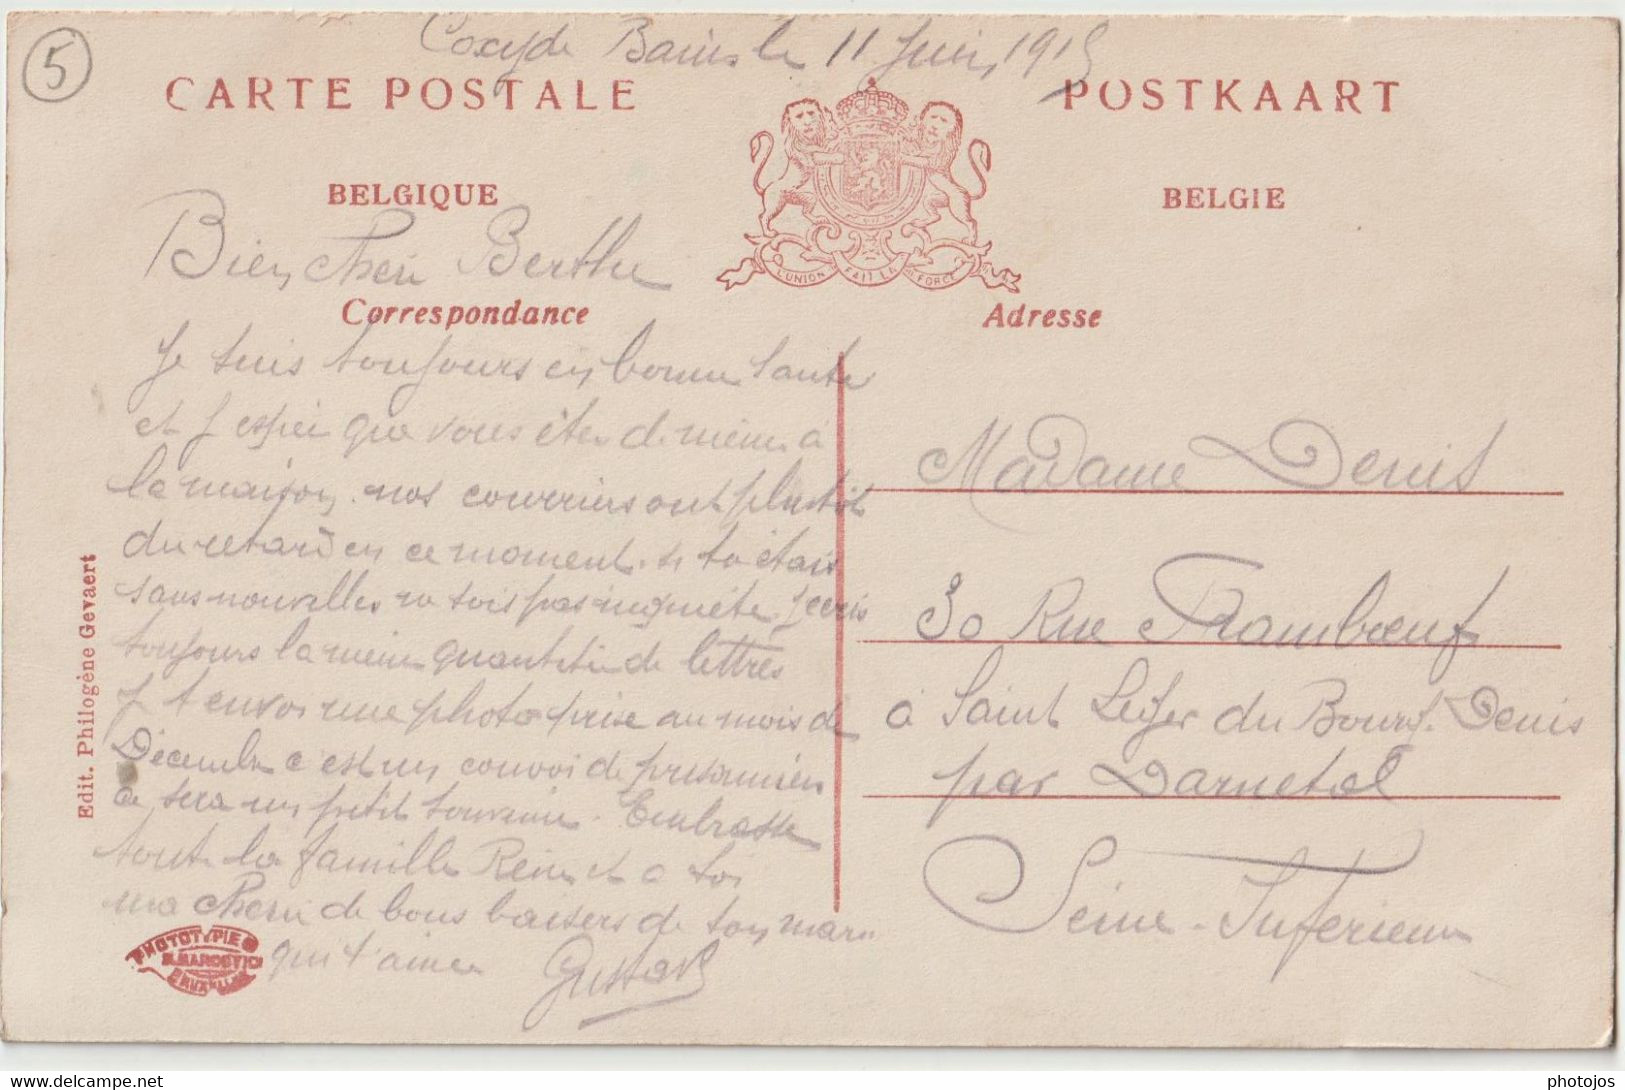 5
Coxyde Bains le 11 Juin 1915
CARTE POSTALE
POSTKAART
BELGIQUE
BELGIE
L'UNION FAIT LA FORCE
Bien cheri Berthe
Correspondance
Adresse
Je suis toujours en bonne Sante
et J espere que vous êtes de même à
la maison, nos courriers ont plutôt
du retard en ce moment si tu étais
sans nouvelles ne sois pas inquiète. J ecris
toujours la meme quantitée de lettres
J t envoi une photo prise au mois de
Décembre c est un convoi de prisonniers
ce sera un petit souvenir. Embrasse
toute la famille et a toi
ma cheri de bons baisers de ton mari
qui t'aime Gustave
Madame Denis
30 Rue Tramboeuf
à Saint Leger du Bourg. Denis
par Darnetal
Seine-Inferieure
Edit. Philogène Gevaert
PHOTOTYPIE
MARCOVICI
BRUXELLES
www.delcampe.net
photojos